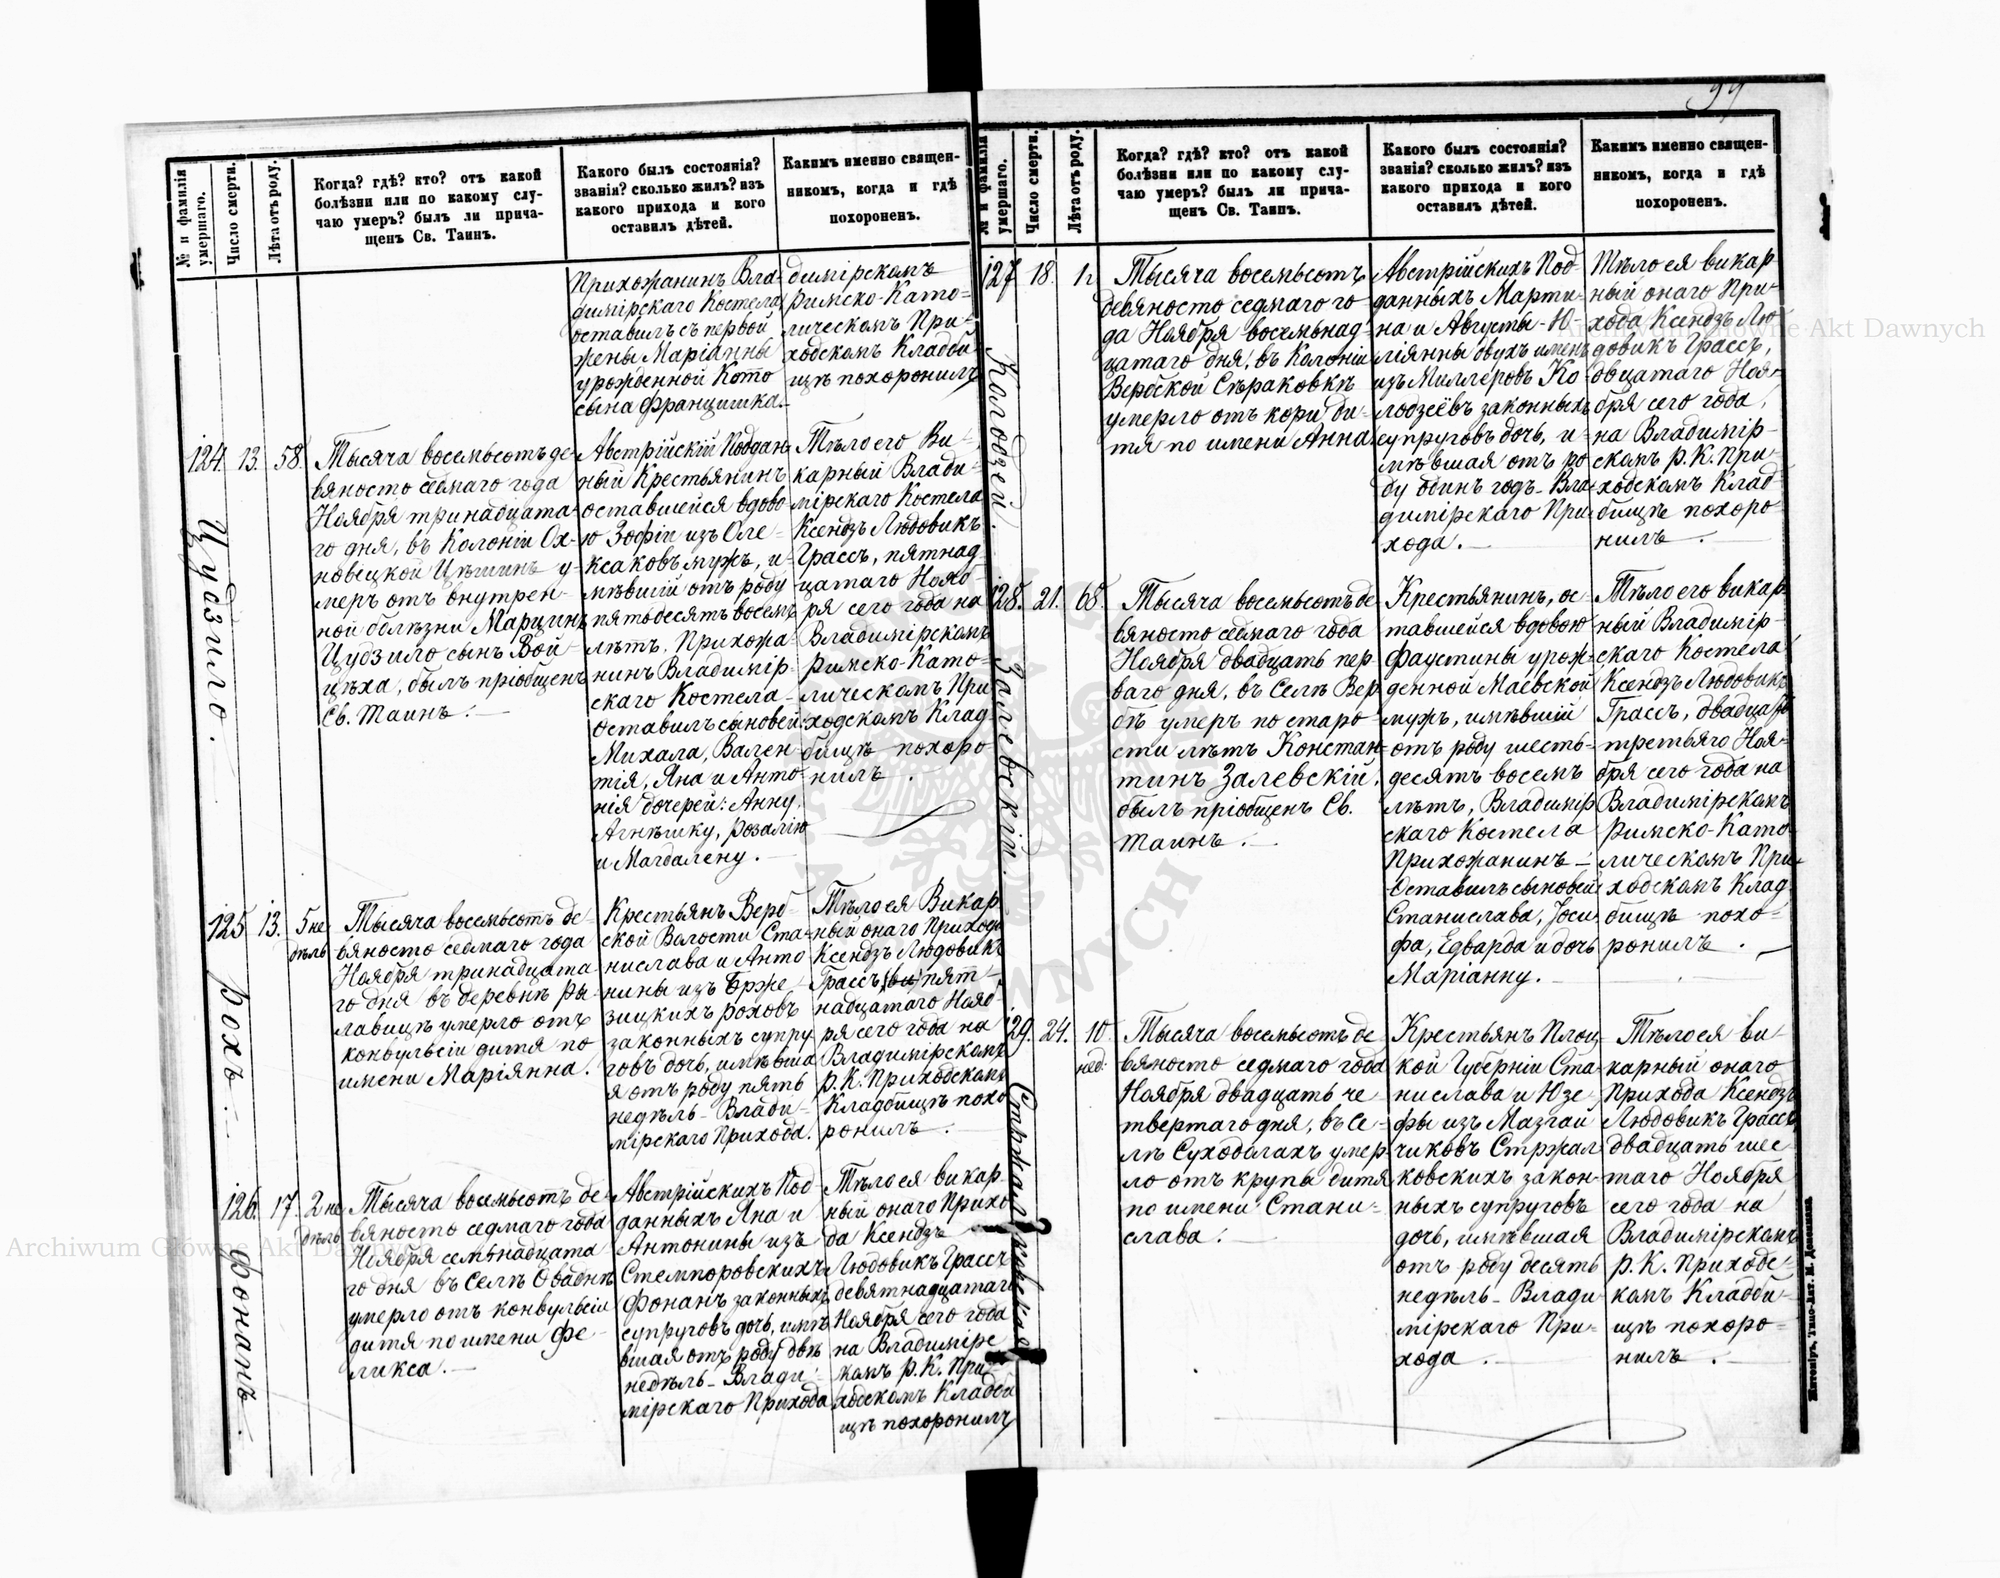 99
№ и фамилія умершаго.
Число смерти.
Лѣта отъ роду.
Когда? гдѣ? кто? отъ какой
болѣзни или по какому слу-
чаю умеръ? былъ ли прича-
щенъ Св. Таинъ.
Какого былъ состоянія?
званія? сколько жилъ? изъ
какого прихода и кого
оставилъ дѣтей.
Какимъ именно священ-
никомъ, когда и гдѣ
похороненъ.
Прихожанинъ Вла-
димірскаго Костела
оставилъ съ первой
жены Маріанны
урожденной Кото
сына Францишка.
димірскомъ
Римско-Като-
лическомъ При-
ходскомъ Кладби
щѣ похоронилъ
124.
13.
58.
Цудзило.
Тысяча восемьсотъ де-
вяносто седмаго года
Ноября тринадцата-
го дня, въ Колоніи Ох-
новецкой Цѣшинъ у-
меръ отъ внутрен-
ной болѣзни Марцинъ
Цудзило сынъ Вой-
цѣха, былъ пріобщенъ
Св. Таинъ.
Австрійскій Поддан-
ный Крестьянинъ
оставшейся вдово-
ю Зофіи изъ Оле-
ксаковъ мужъ, и-
мѣвшій отъ роду
пятьдесятъ восемь
лѣтъ. Прихожа-
нинъ Владимір-
скаго Костела
Оставилъ сыновей:
Михала, Вален-
тія, Яна и Анто-
нія дочерей: Анну,
Агнѣшку, Розалію
и Магдалену.
Тѣло его Ви-
карный Влади-
мірскаго Костела
Ксендзъ Людовикъ
Грассъ, пятнад-
цатаго Нояб-
ря сего года на
Владимірскомъ
Римско-Като-
лическомъ При
ходскомъ Клад-
бищѣ похоро-
нилъ.
125
13.
5 не
дѣль
Рохъ.
Тысяча восемьсотъ де-
вяносто седмаго года
Ноября тринадцата
го дня въ деревнѣ Ры-
лавицѣ умерло отъ
конвульсіи дитя по
имени Маріянна.
Крестьянъ Верб-
ской Волости Ста-
нислава и Анто
нины изъ Брже-
зицкихъ Роховъ
законныхъ супру
говъ дочь, имѣвша
я отъ роду пять
недѣль - Влади-
мірскаго Прихода.
Тѣло ея Викар
ный онаго Прихода
Ксендзъ Людовикъ
Грассъ пят-
надцатаго Нояб-
ря сего года на
Владимірскомъ
Р. К. Приходскомъ
Кладбищѣ похо
ронилъ.
126.
17.
2 не
дѣль
Фонанъ.
Тысяча восемьсотъ де-
вяносто седмаго года
Ноября семьнадцата
го дня въ Селѣ Оваднѣ
умерло отъ конвульсіи
дитя по имени Фе-
ликса.
Австрійскихъ Под-
данныхъ Яна и
Антонины изъ
Стемпоровскихъ
Фонанъ законныхъ
супруговъ дочь, имѣ
вшая отъ роду двѣ
недѣль - Влади-
мірскаго Прихода
Тѣло ея викар
ный онаго Прихо
да Ксендзъ
Людовикъ Грассъ
девятнадцатаго
Ноября сего года
на Владимірс
комъ Р. К. При-
ходскомъ Кладби
щѣ похоронилъ
№ и фамилія умершаго.
Число смерти.
Лѣта отъ роду.
Когда? гдѣ? кто? отъ какой
болѣзни или по какому слу-
чаю умеръ? былъ ли прича-
щенъ Св. Таинъ.
Какого былъ состоянія?
званія? сколько жилъ? изъ
какого прихода и кого
оставилъ дѣтей.
Какимъ именно священ-
никомъ, когда и гдѣ
похороненъ.
127
18.
1 г.
Колодзей.
Тысяча восемьсотъ
девяносто седмаго го
да Ноября восемьнад-
цатаго дня, въ Колоніи
Вербской Сѣраковкѣ
умерло отъ кори ди-
тя по имени Анна.
Австрійскихъ Под-
данныхъ Марти-
на и Августы-Ю-
ліянны двухъ именъ
изъ Миллеровъ Ко-
лодзеёвъ законныхъ
супруговъ дочь, и-
мѣвшая отъ ро
ду одинъ годъ - Вла-
димірскаго При
хода.
Тѣло ея викар
ный онаго При-
хода Ксендзъ Лю-
довикъ Грассъ,
двцатаго Ноя-
бря сего года,
на Владимір-
скомъ Р. К. При-
ходскомъ Клад-
бищѣ похоро-
нилъ.
128.
21.
68.
Залевскій.
Тысяча восемьсотъ де
вяносто седмаго года
Ноября двадцать пер-
ваго дня, въ Селѣ Вер
бѣ умеръ по старо-
сти лѣтъ Констан-
тинъ Залевскій,
былъ пріобщенъ Св.
Таинъ.
Крестьянинъ, ос-
тавшейся вдовою
Фаустины урож-
денной Маевской
мужъ, имѣвшій
отъ роду шесть-
десятъ восемь
лѣтъ, Владимір
скаго Костела
Прихожанинъ -
Оставилъ сыновей
Станислава, Іоси-
фа, Едварда и дочь
Маріанну.
Тѣло его викар
ный Владимір-
скаго Костела
Ксендзъ Людовикъ
Грассъ, двадцать
третьяго Ноя-
бря сего года на
Владимірскомъ
Римско-Като-
лическомъ При-
ходскомъ Клад
бищѣ похо-
ронилъ.
129.
24.
10
нед.
Стржалковская
Тысяча восемьсотъ де
вяносто седмаго года
Ноября двадцать че-
твертаго дня, въ Се-
лѣ Суходолахъ умер-
ло отъ крупы дитя
по имени Стани-
слава.
Крестьянъ Плоц-
кой Губерніи Ста-
нислава и Юзе-
фы изъ Мазгай
чиковъ Стржал-
ковскихъ закон-
ныхъ супруговъ
дочь, имѣвшая
отъ роду десять
недѣль - Влади-
мірскаго При-
хода.
Тѣло ея ви-
карный онаго
Прихода Ксендзъ
Людовикъ Грассъ
двадцать шес
таго Ноября
сего года на
Владимірскомъ
Р. К. Приходс-
комъ Кладби-
щѣ похоро-
нилъ.
Житоміръ, Типо-Лит. М. Дененмана
Archiwum Główne Akt Dawnych
Archiwum Główne Akt Dawnych